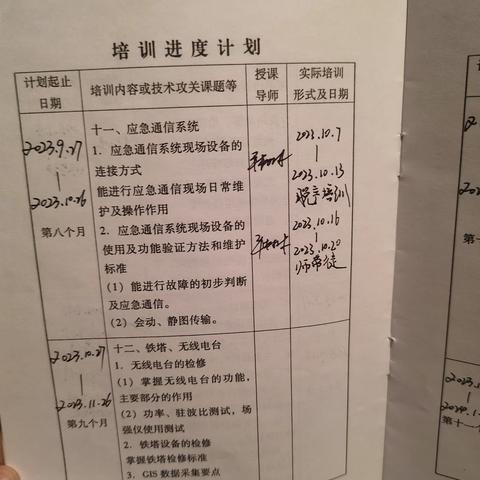 培训进度计划
计划起止
日期
培训内容或技术攻关课题等
授课
导师
实际培训
形式及日期
2023.9.27
|
2023.10.26
第八个月
十一、应急通信系统
1. 应急通信系统现场设备的
连接方式
能进行应急通信现场日常维
护及操作作用
2. 应急通信系统现场设备的
使用及功能验证方法和维护
标准
(1)能进行故障的初步判断
及应急通信。
(2)会动、静图传输。
2023.10.7
|
2023.10.13
脱产培训
2023.10.16
|
2023.10.20
师带徒
2023.10.27
|
2023.11.26
第九个月
十二、铁塔、无线电台
1. 无线电台的检修
(1)掌握无线电台的功能,
主要部分的作用
(2)功率、驻波比测试,场
强仪使用测试
2. 铁塔设备的检修
掌握铁塔检修标准
3. GIS 数据采集要点